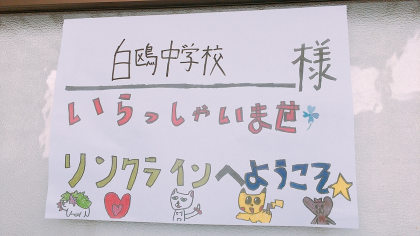 白鴎中学校 様
いらっしゃいませ
リンクラインへようこそ